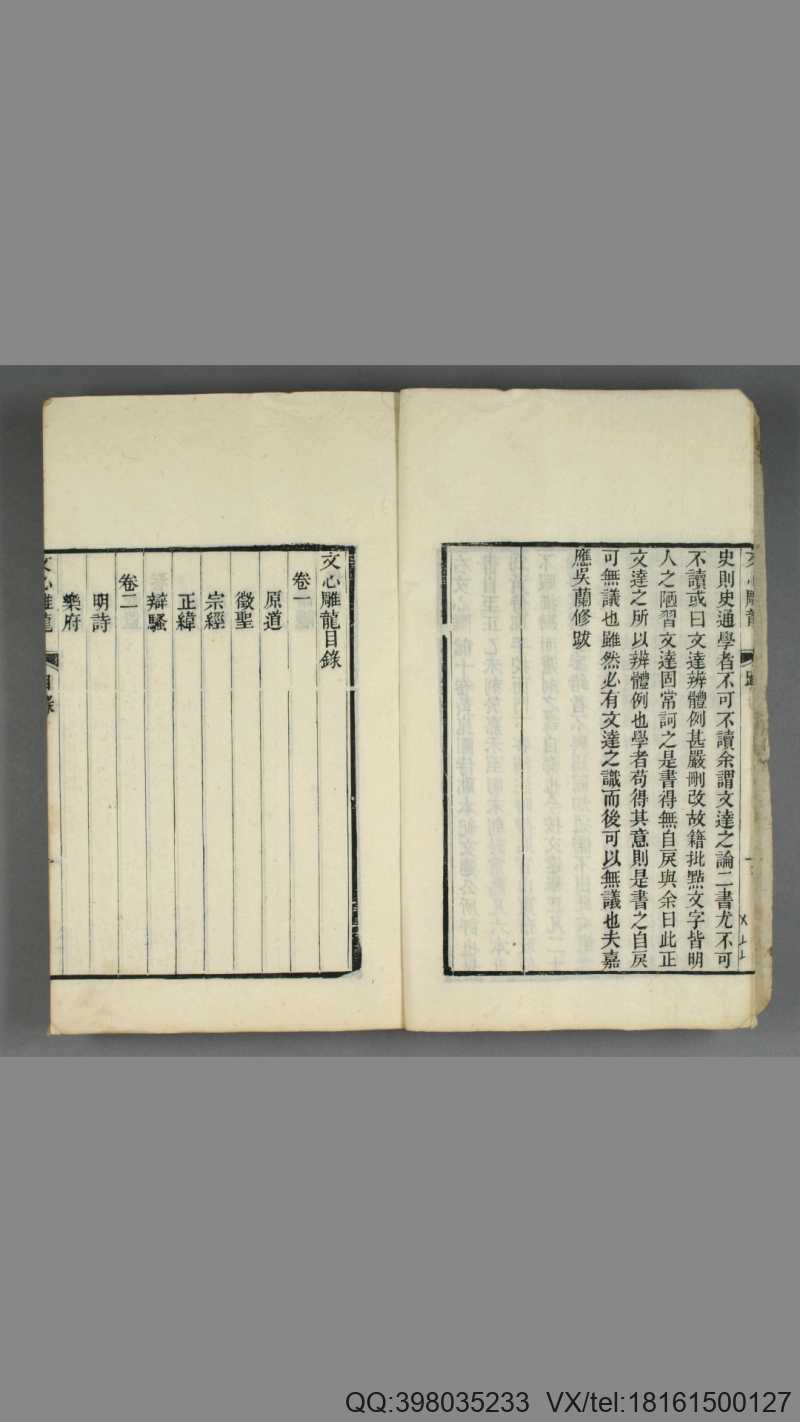 文心雕龍 跋
史則史通學者不可不讀余謂文達之論二書尤不可
不讀或曰文達辨體例甚嚴刪改故籍批點文字皆明
人之陋習文達固常訶之是書得無自戾與余曰此正
文達之所以辨體例也學者苟得其意則是書之自戾
可無議也雖然必有文達之識而後可以無議也夫嘉
應吳蘭修跋
文心雕龍目錄
卷一
原道
徵聖
宗經
正緯
辯騷
卷二
明詩
樂府
文心雕龍 目錄
QQ:398035233 VX/tel:18161500127